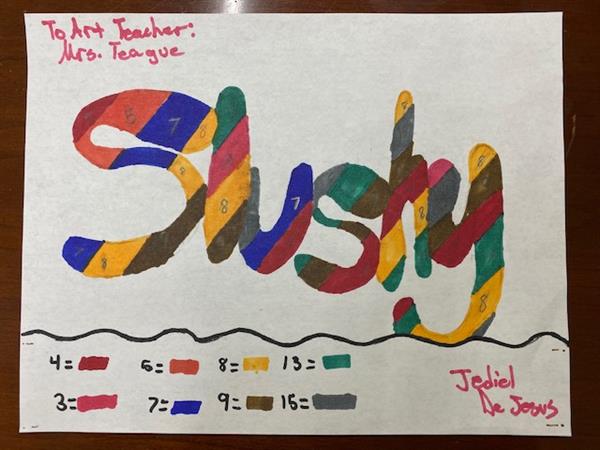 To Art Teacher:
Mrs. Teague
Slushy
8
7
8
8
8
8
7
8
7
8
8
8
4=
6=
8=
13=
3=
7=
9=
15=
Jediel
De Jesus